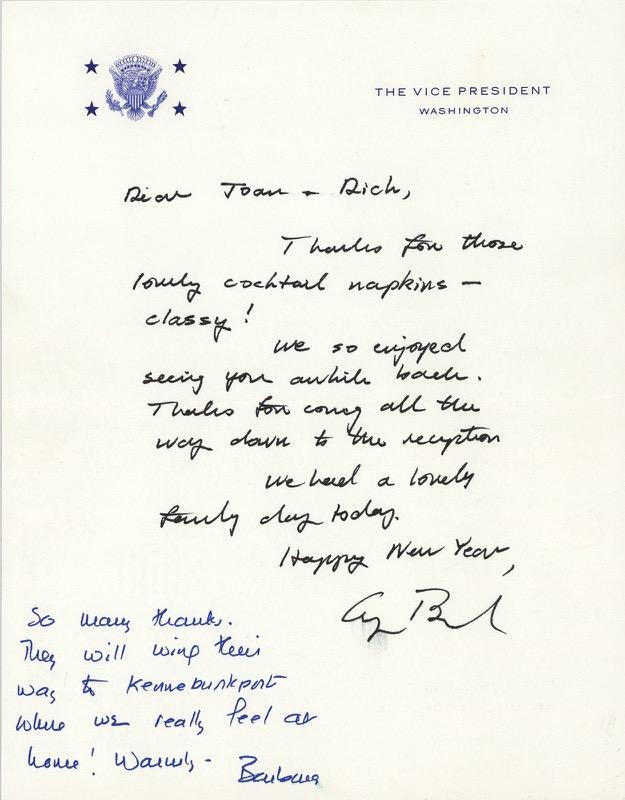 THE VICE PRESIDENT
WASHINGTON
Dear Joan + Dick,
Thanks for those
lovely cocktail napkins –
classy!
We so enjoyed
seeing you awhile back.
Thanks for coming all the
way down to the reception
We had a lovely
family day today.
Happy New Year,
So many thanks.
They will wing their
way to Kennebunkport
where we really feel at
home! Warmly -
Barbara